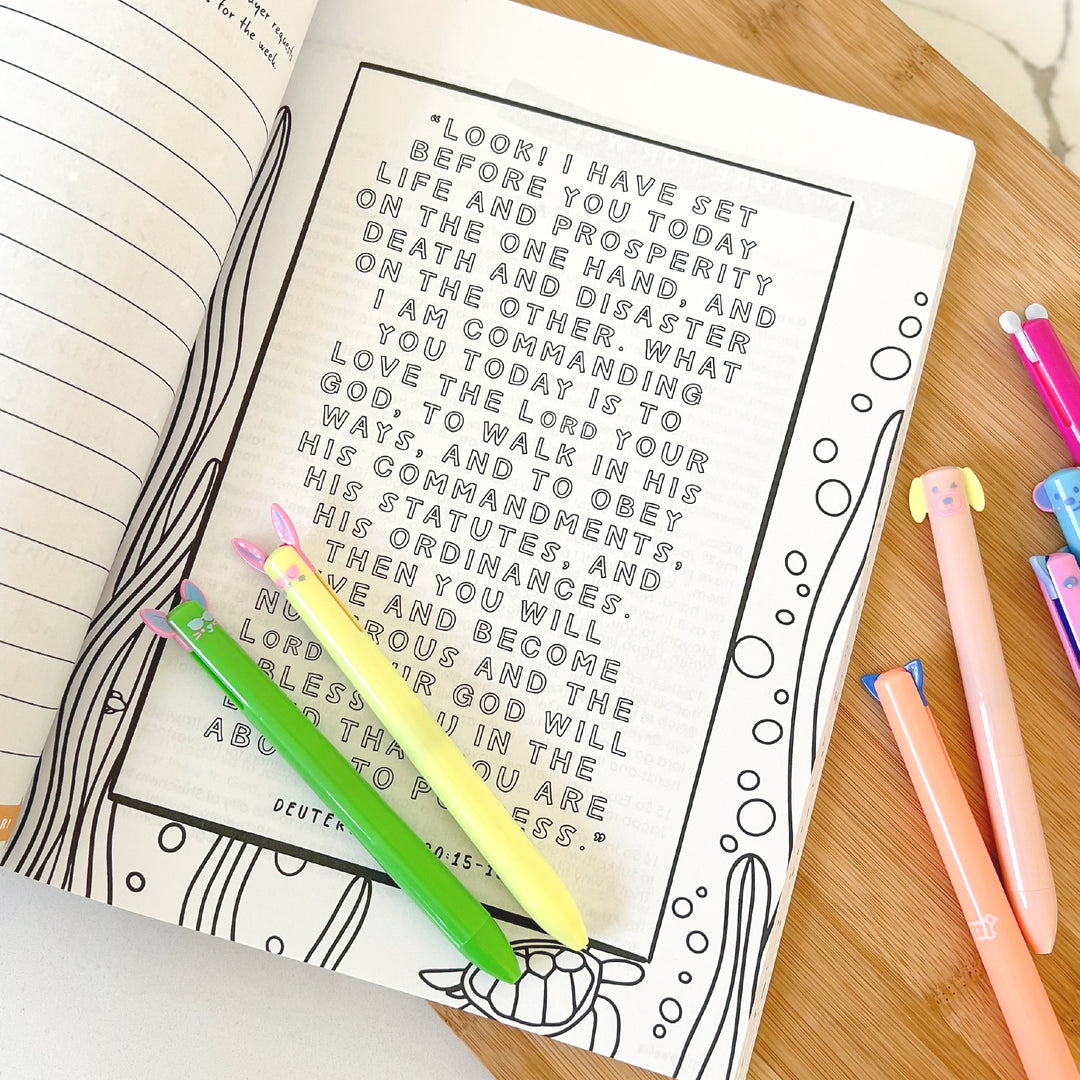 ayer requests
for the week.
“LOOK! I HAVE SET
BEFORE YOU TODAY
LIFE AND PROSPERITY
ON THE ONE HAND, AND
DEATH AND DISASTER
ON THE OTHER. WHAT
I AM COMMANDING
YOU TODAY IS TO
LOVE THE LORD YOUR
GOD, TO WALK IN HIS
WAYS, AND TO OBEY
HIS COMMANDMENTS,
HIS STATUTES, AND
HIS ORDINANCES.
THEN YOU WILL
VE AND BECOME
NU ROUS AND THE
LORD UR GOD WILL
BLESS U IN THE
D THA OU ARE
ABO TO PO ESS.”
DEUTER 30:15-1